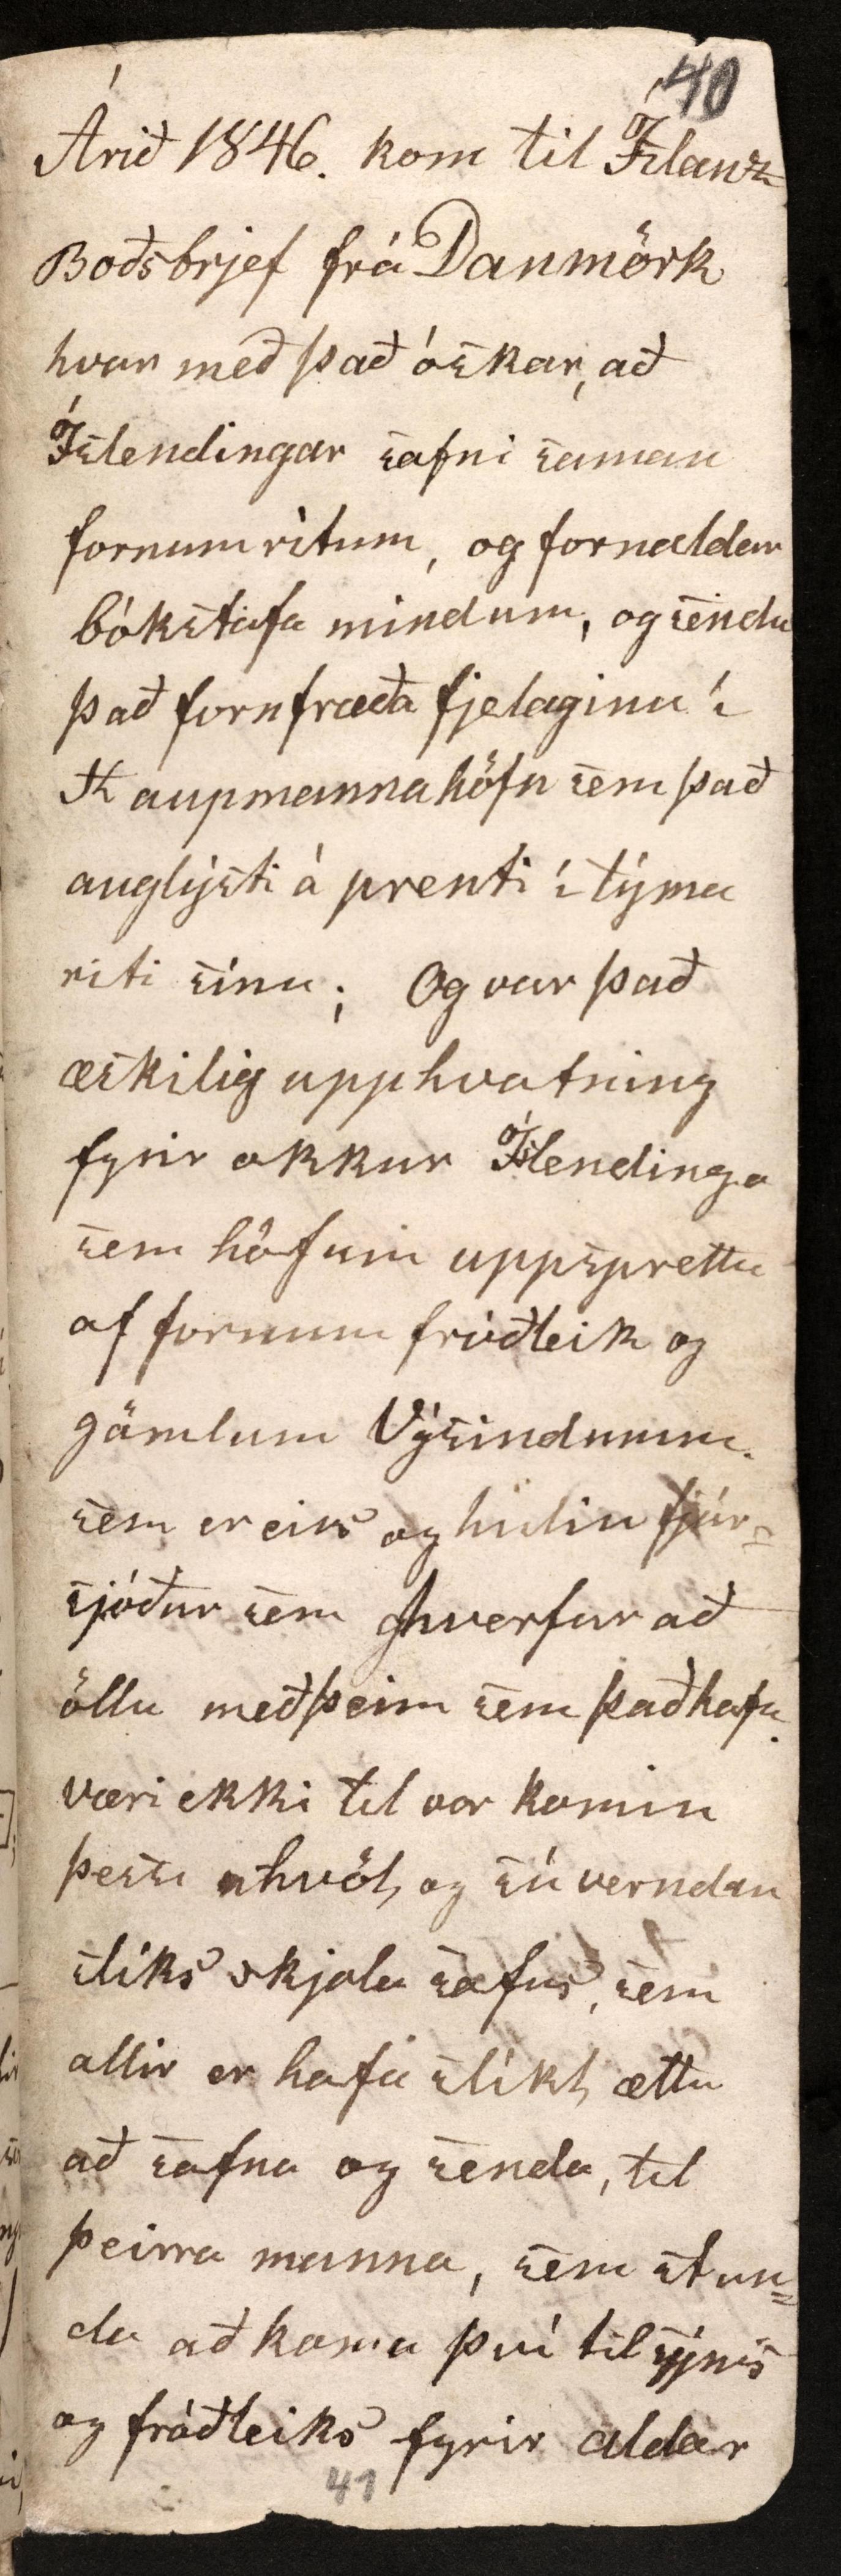 40
Árið 1846. kom til Íslanz
Boðsbrjef frá Danmörk
hvar með það óskar, að
Íslendingar safni saman
fornum ritum, og fornaldar
bókstafa mindum, og sendu
það fornfræða fjelaginu í
Kaupmannahöfn sem það
auglýsti á prenti í týma
riti sínu; Og var það
æskilig upphvatning
fyrir okkur Íslendinga
sem höfum uppsprettu
af fornum fróðleik og
gömlum Výsindumm.
sem er eins og hulin fjár-
sjóður sem hverfur að
öllu með þeim sem það hafa.
væri ekki til vor komin
þessi hvöt, og sú verndan
slíks skjala safns, sem
allir er hafa slíkt, ættu
að safna og senda, til
þeirra manna, sem stun=
da að koma því til sýnis
og fróðleiks fyrir aldar
41